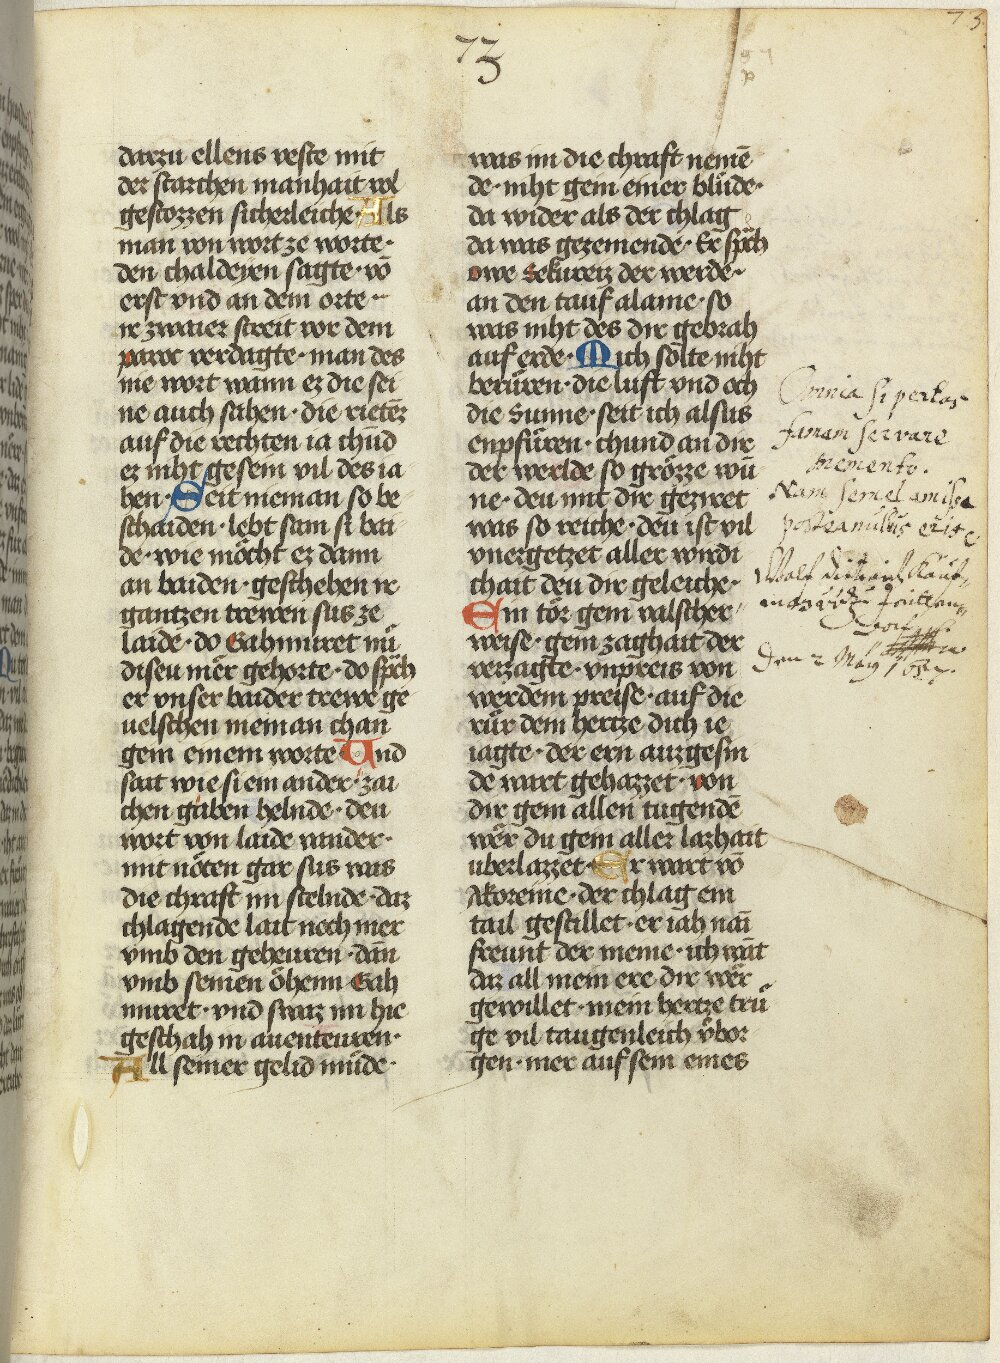 73
73
darzu ellens veste mit
der starchen manhait wol
gestozzen sicherleiche· Alls
man von wort ze worte·
den chaldeyen sagte· vō
erst vnd an dem orte·
ir zwaier streit vor dem
paroc verdagte· man des
nie wort wann er die sei
ne auch sahen· die rietēr
auf die rechten ia chūd
er niht gesein vil des ia
hen· Seit nieman so be
schaiden· lebt sam si bai
de· wie möcht er dann
an baiden· geschehen ir
gantzen trewen sus ze
laide· do Gahmuret nū
diseu mer gehorte· do sp̄ch
er vnser baider trewe ge
uelschen nieman chan
gem einem worte Und
sait wie si ein ander· zai
chen gaben helnde· deu
wort von laide wander·
mit nöten gar sus was
die chraft im stelnde· daz
chlagende lait noch mer
vmb den geheuren· dān
vmb seinen öhenn Gah
muret· vnd swaz im hie
geschah in auenteuren·
All seiner gelid müde·
was im die chraft nemē
de· niht gem einer blüde·
da wider als der chlag
da was gezemende· Er sp̄ch
owe Sekureiz der werde·
an den tauf alaine· so
was niht des dir gebrah
auf erde· Mich solte niht
berüren· die luft vnd och
die Sunne· seit ich alsus
enpfüren· chund an dir
der werlde so grözze wū
ne· deu mit dir geziret
was so reiche· deu ist vil
vnergetzet aller wirdi
chait deu dir geleiche·
Ein tör gem valscher
weise· gem zaghait der
verzagte· vnpreis von
werdem preise· auf die
rür dem hertze dich ie
iagte· der ern auzgesin
de wart gehazzet· von
dir gem allen tugendē
wer du gem aller lazhait
uberlazzet· Er wart vō
Akoreine· der chlag ein
tail gestillet· er iah nāī
freunt der meine· ich wāt
daz all mein ere dir wer
gewillet· mein hertze trū
ge vil taugenleich vbor
gen· mer auf sein eines
Omnia si perdas
famam servare
memento.
Nam semel amissa
postea nullus eris
Wolf
Den 2 May